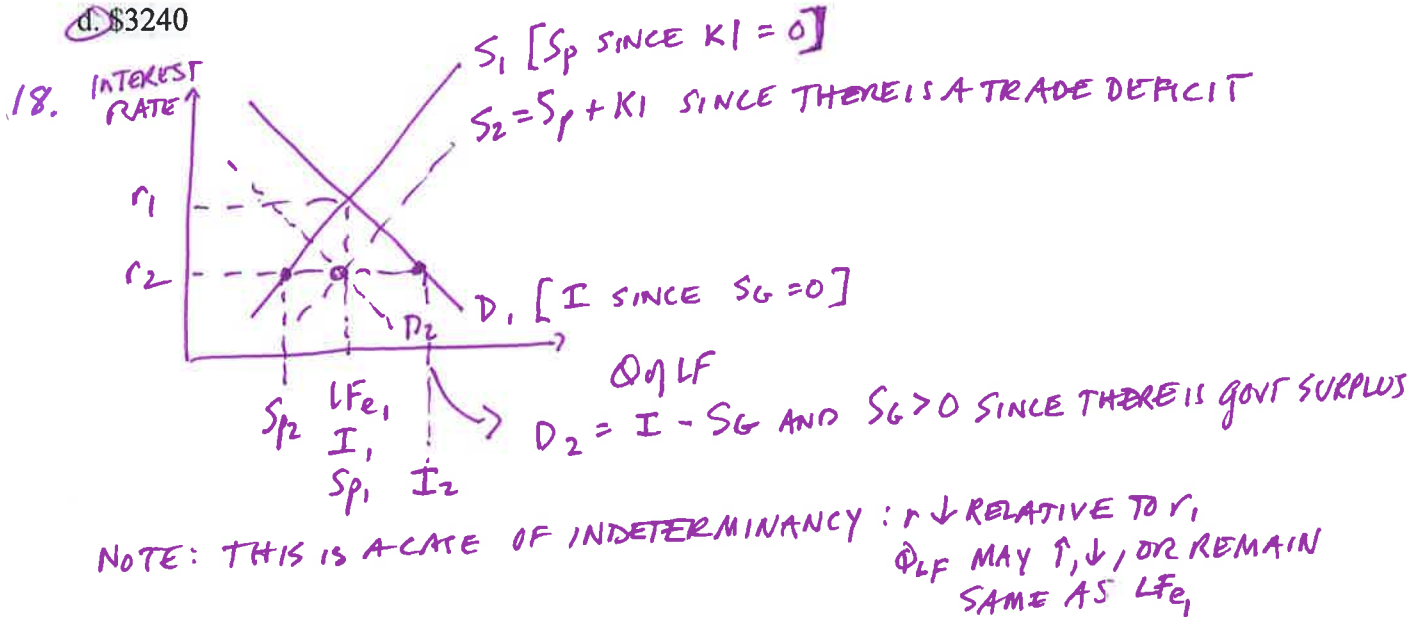 d. $3240
18. INTEREST RATE
S₁ [Sp SINCE KI = 0]
S₂ = Sp + KI SINCE THERE IS A TRADE DEFICIT
r₁
r₂
D₁ [I SINCE SG = 0]
D₂
Q of LF
Sp₂
LFe₁
I₁
Sp₁
I₂
D₂ = I - SG AND SG > 0 SINCE THERE IS GOVT SURPLUS
NOTE: THIS IS A CASE OF INDETERMINANCY : r ↓ RELATIVE TO r₁
QLF MAY ↑, ↓, OR REMAIN
SAME AS LFe₁